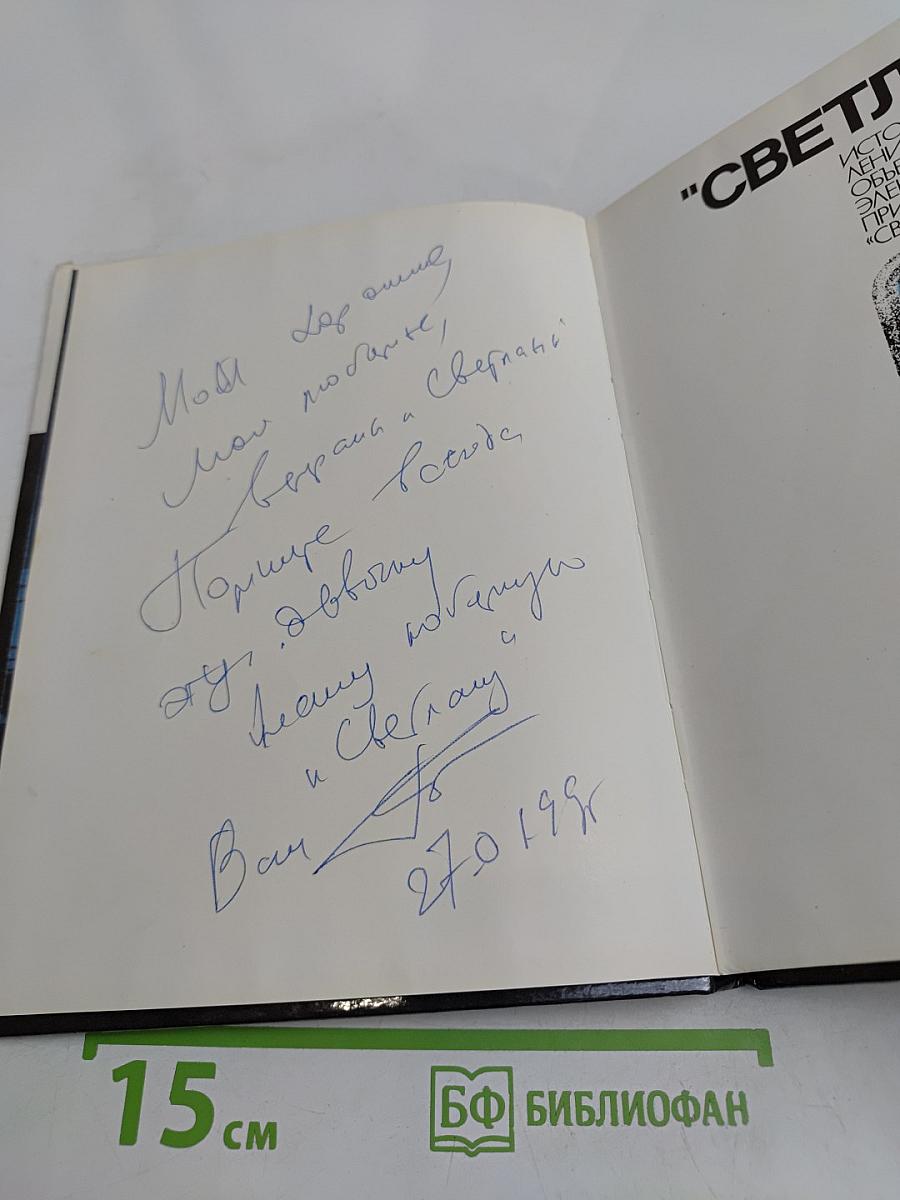 Мои хорошие,
Мои любимые,
ветераны "Светланы"
Помните всегда
эту
нашу любимую
и "Светлану"
Ваш
27.01.99г
"СВЕТЛ
ИСТО
ЛЕНИ
ОБЪЕ
ЭЛЕ
ПРИ
«СВ
15 см
БФ БИБЛИОФАН